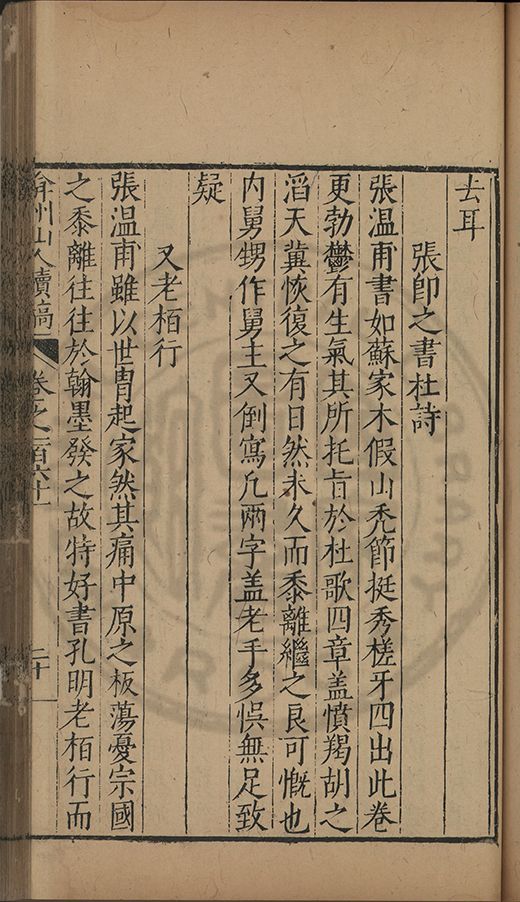 去耳
張即之書杜詩
張温甫書如蘇家木假山禿節挺秀槎牙四出此卷
更勃鬱有生氣其所托旨於杜歌四章盖憤羯胡之
滔天冀恢復之有日然未久而黍離繼之良可慨也
内舅甥作舅主又倒寫凢兩字盖老手多悞無足致
疑
又老栢行
張温甫雖以世胄起家然其痛中原之板蕩憂宗國
之黍離往往於翰墨發之故特好書孔明老栢行而
弇州山人續稿 卷之一百六十一 二十